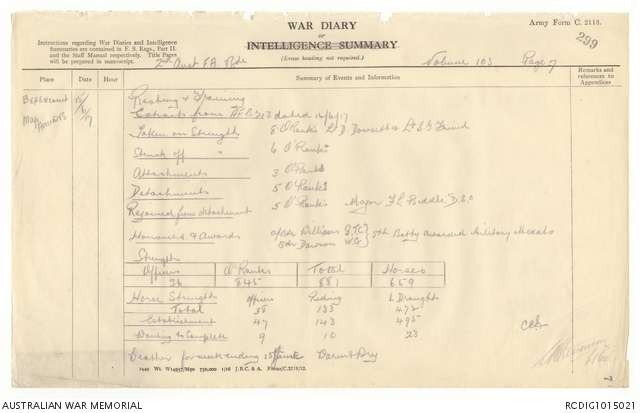 WAR DIARY
or
INTELLIGENCE SUMMARY
(Erase heading not required.)
Army Form C. 2118.
299
Instructions regarding War Diaries and Intelligence
Summaries are contained in F. S. Regs., Part II.
and the Staff Manual respectively. Title Pages
will be prepared in manuscript.
2nd Aust FA Bde
Volume 103 Page 7
Place Date Hour Summary of Events and Information Remarks and references to Appendices
Resting & Training
Extracts from dated 16/6/17
Taken on Strength 8 O'Ranks Lt D
Struck off " 6 O'Ranks
Attachments 3 O'Ranks
Detachments 5 O'Ranks
Rejoined from detachment 5 O'Ranks Major F L Biddle D.S.O
Honours & Awards Williams G.T.C.
Bdr Dawson W.G. 5th Batty awarded Military Medals
Strength
Officers O'Ranks Total Horses
36 845 881 659
Horse Strength Officers Riding L Draught
Total 38 133 472
Establishment 47 143 495
Wanting to Complete 9 10 23
Weather for week ending 15th June Warm & Dry
1449 Wt. W14957/M90 750,000 1/16 J.B.C. & A. Forms/C.2118/12.
AUSTRALIAN WAR MEMORIAL
RCDIG1015021